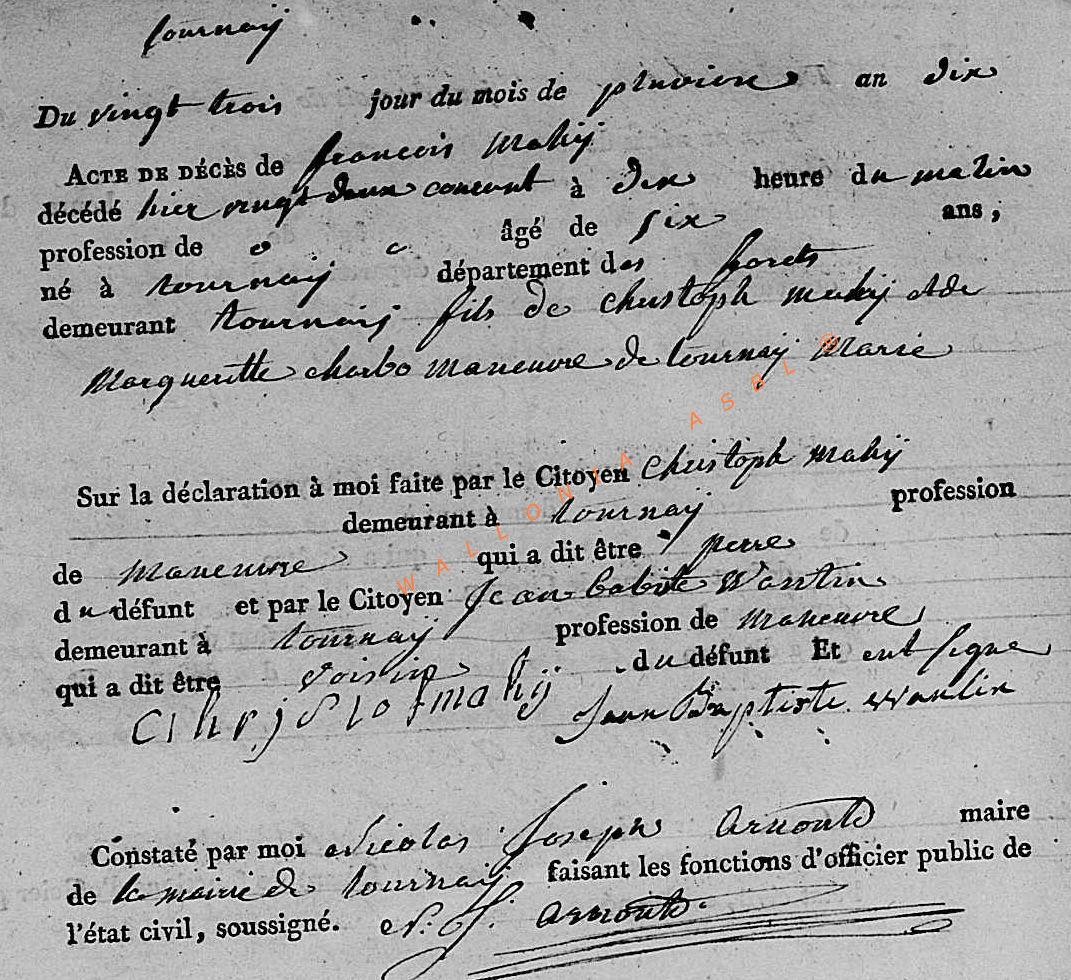 tournaÿ
Du vingt trois jour du mois de pluviose an dix
ACTE DE DÉCÈS de francois Mahÿ
décédé hier vingt deux courant à dix heure du matin
profession de o o âgé de six ans,
né à tournaÿ département des forets
demeurant tournaÿ fils de christoph mahÿ et de
Margueritte charbo maneuvre de tournaÿ Marie
Sur la déclaration à moi faite par le Citoyen Christoph Mahÿ
demeurant à tournaÿ profession
de maneuvre qui a dit être perre
du défunt et par le Citoyen Jean babtiste Wantin
demeurant à tournaÿ profession de maneuvre
qui a dit être voisin du défunt Et ont signe
Chrjstof mahÿ Jean Baptiste Wanlin
Constaté par moi Nicolas Joseph Arnould maire
de la mairie de tournaÿ faisant les fonctions d'officier public de
l'état civil, soussigné. N. J. Arnould.
WALLONIA ASBL